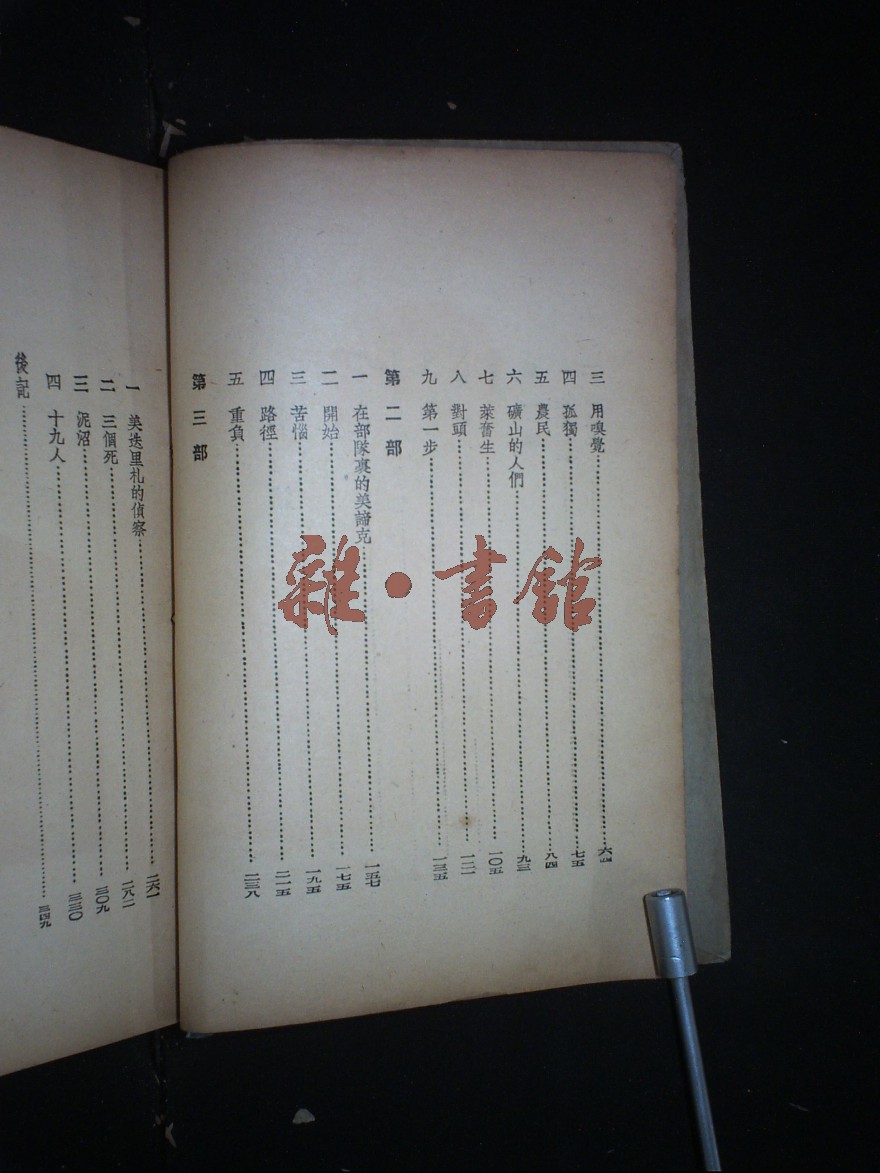 三 用嗅覺 六四
四 孤獨 七五
五 農民 八四
六 礦山的人們 九三
七 萊奮生 一〇五
八 對頭 一二一
九 第一步 一三五
第二部
一 在部隊裏的美諦克 一五七
二 開始 一七五
三 苦惱 一九五
四 路徑 二一五
五 重負 二三八
第三部
一 美迭里札的偵察 二六一
二 三個死 二八二
三 泥沼 三〇九
四 十九人 三三〇
後記 三四九
雜·書館